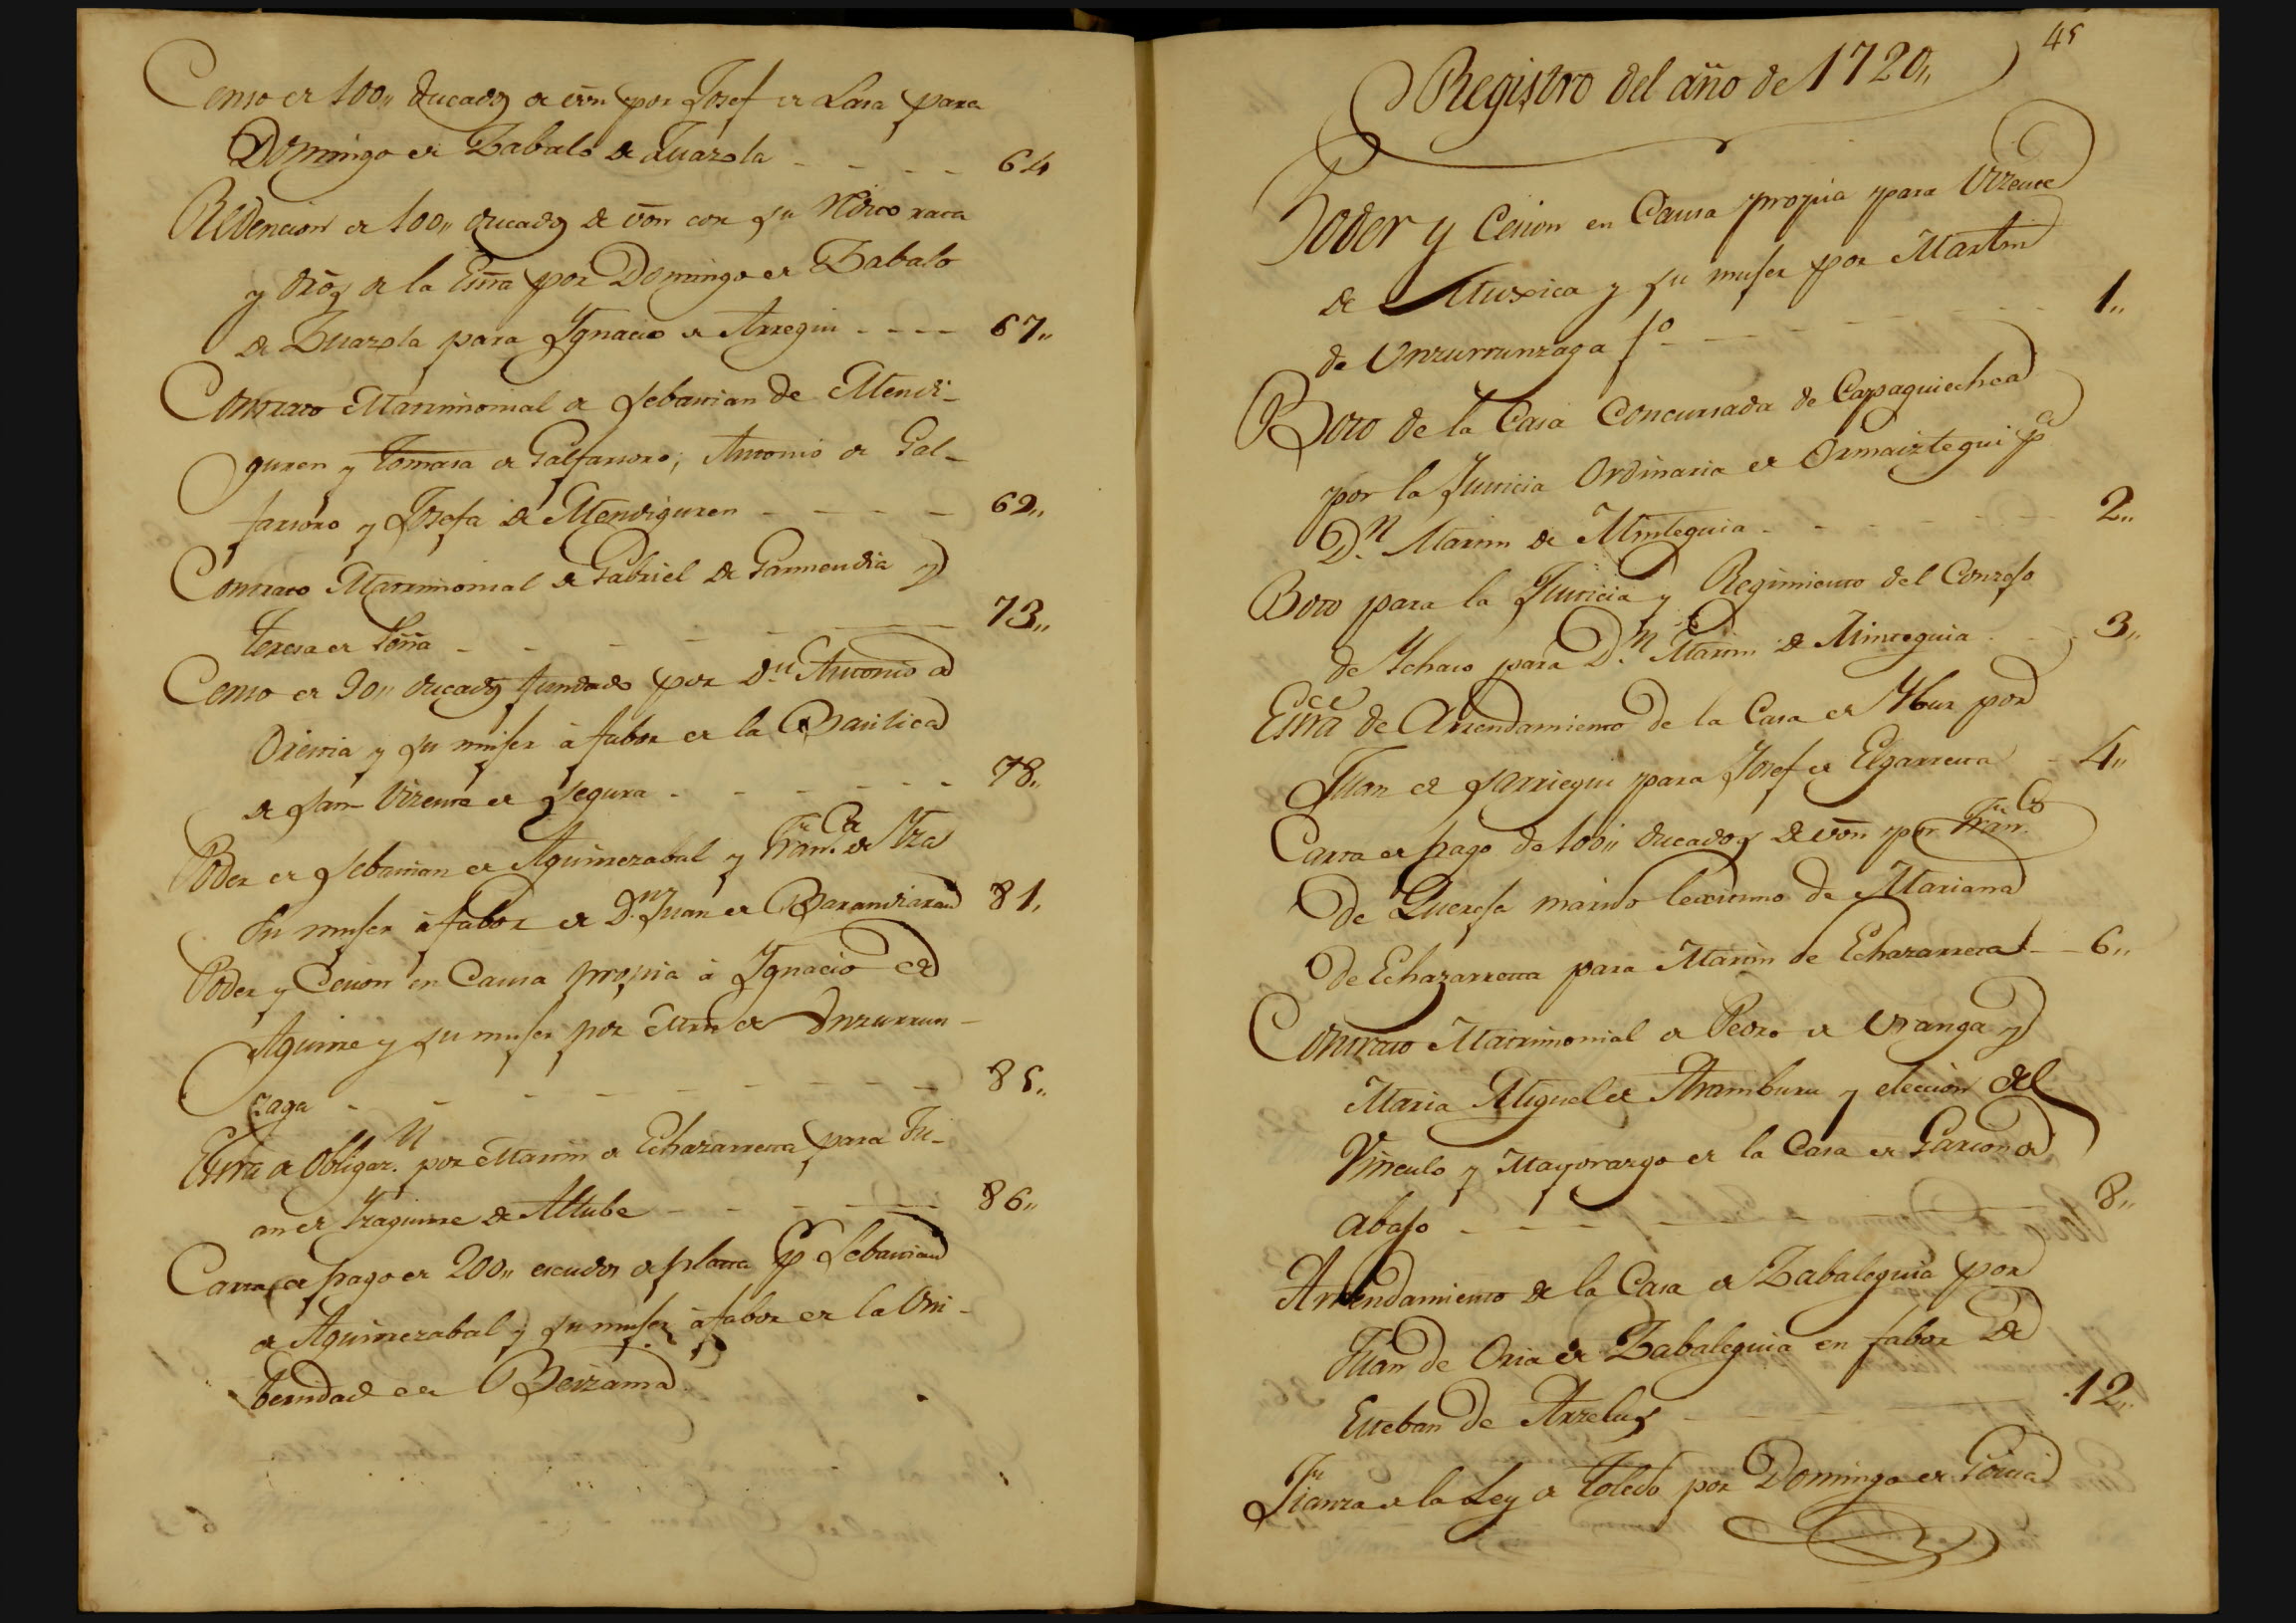 Censo de 100,, ducados de vōn por Josef de Lasa para
Domingo de Zabalo de Zuazola - - - - 64
Redencion de 100,, ducados de vōn con su rata
y dr̃os de la Esc̃ra por Domingo de Zabalo
de Zuazola para Ygnacio de Arregui - - - - 67,,
Contrato Matrimonial de Sebastian de Mendi-
guren y Tomasa de Galfarsoro; Antonio de Gal-
farsoro y Josefa de Mendiguren - - - - 69,,
Contrato Matrimonial de Gabriel de Garmendia y
Teresa de - - - - 73,,
Censo de 90,, ducados fundado por Dn. Antonio de
Oiensia y su muger à fabor de la Basilica
de San Vizente de Segura - - - - 78,,
Poder de Sebastian de Aguirrezabal y Franca. de Yza
Su muger à fabor de Dn. Juan de Barandiaran 81,
Poder y Cesion en Causa propia à Ygnacio de
Aguirre y su muger por Mrn de Unzurrun-
zaga - - - - 85,,
Esc̃ra de Obligazn. por Martin de Echazarreta para Ju-
an de Yzaguirre de Altube - - - - 86,,
Carta de pago de 200,, escudos de plata p. Sebastian
de Aguirrezabal y su muger à fabor de la Vni-
bersidad de Beizama
45
Registro del año de 1720,,
Poder y Cesion en Causa propia para Vizente
de Muxica y su muger por Martin
de Unzurrunzaga fo. - - - - 1,,
Boto de la Casa Concursada de Capaguiechea
por la Justicia Ordinaria de Ormaiztegui pa.
Dn. Martin de Minteguia - - - - 2,,
Boto para la Justicia y Regimiento del Conzejo
de Ychaso para Dn. Martin de Minteguia - - 3,,
Esc̃ra de Arrendamiento de la Casa de Ybur por
Juan de Sarriegui para Josef de Elgarresta - 4,,
Carta de pago de 100,, ducados de vōn por Franco.
de Querejeta marido lexitimo de Mariana
de Echazarreta para Martin de Echazarreta - - 6,,
Contrato Matrimonial de Pedro de Vranga y
Maria Miguel de Aramburu y eleccion del
Vinculo y Mayorazgo de la Casa de Garzion de
abajo - - - - 8,,
Arrendamiento de la Casa de Zabaleguia por
Juan de Oria de Zabaleguia en fabor de
Esteban de Arzelus - - - - 12,,
Fianza de la Ley de Toledo por Domingo de Goitia